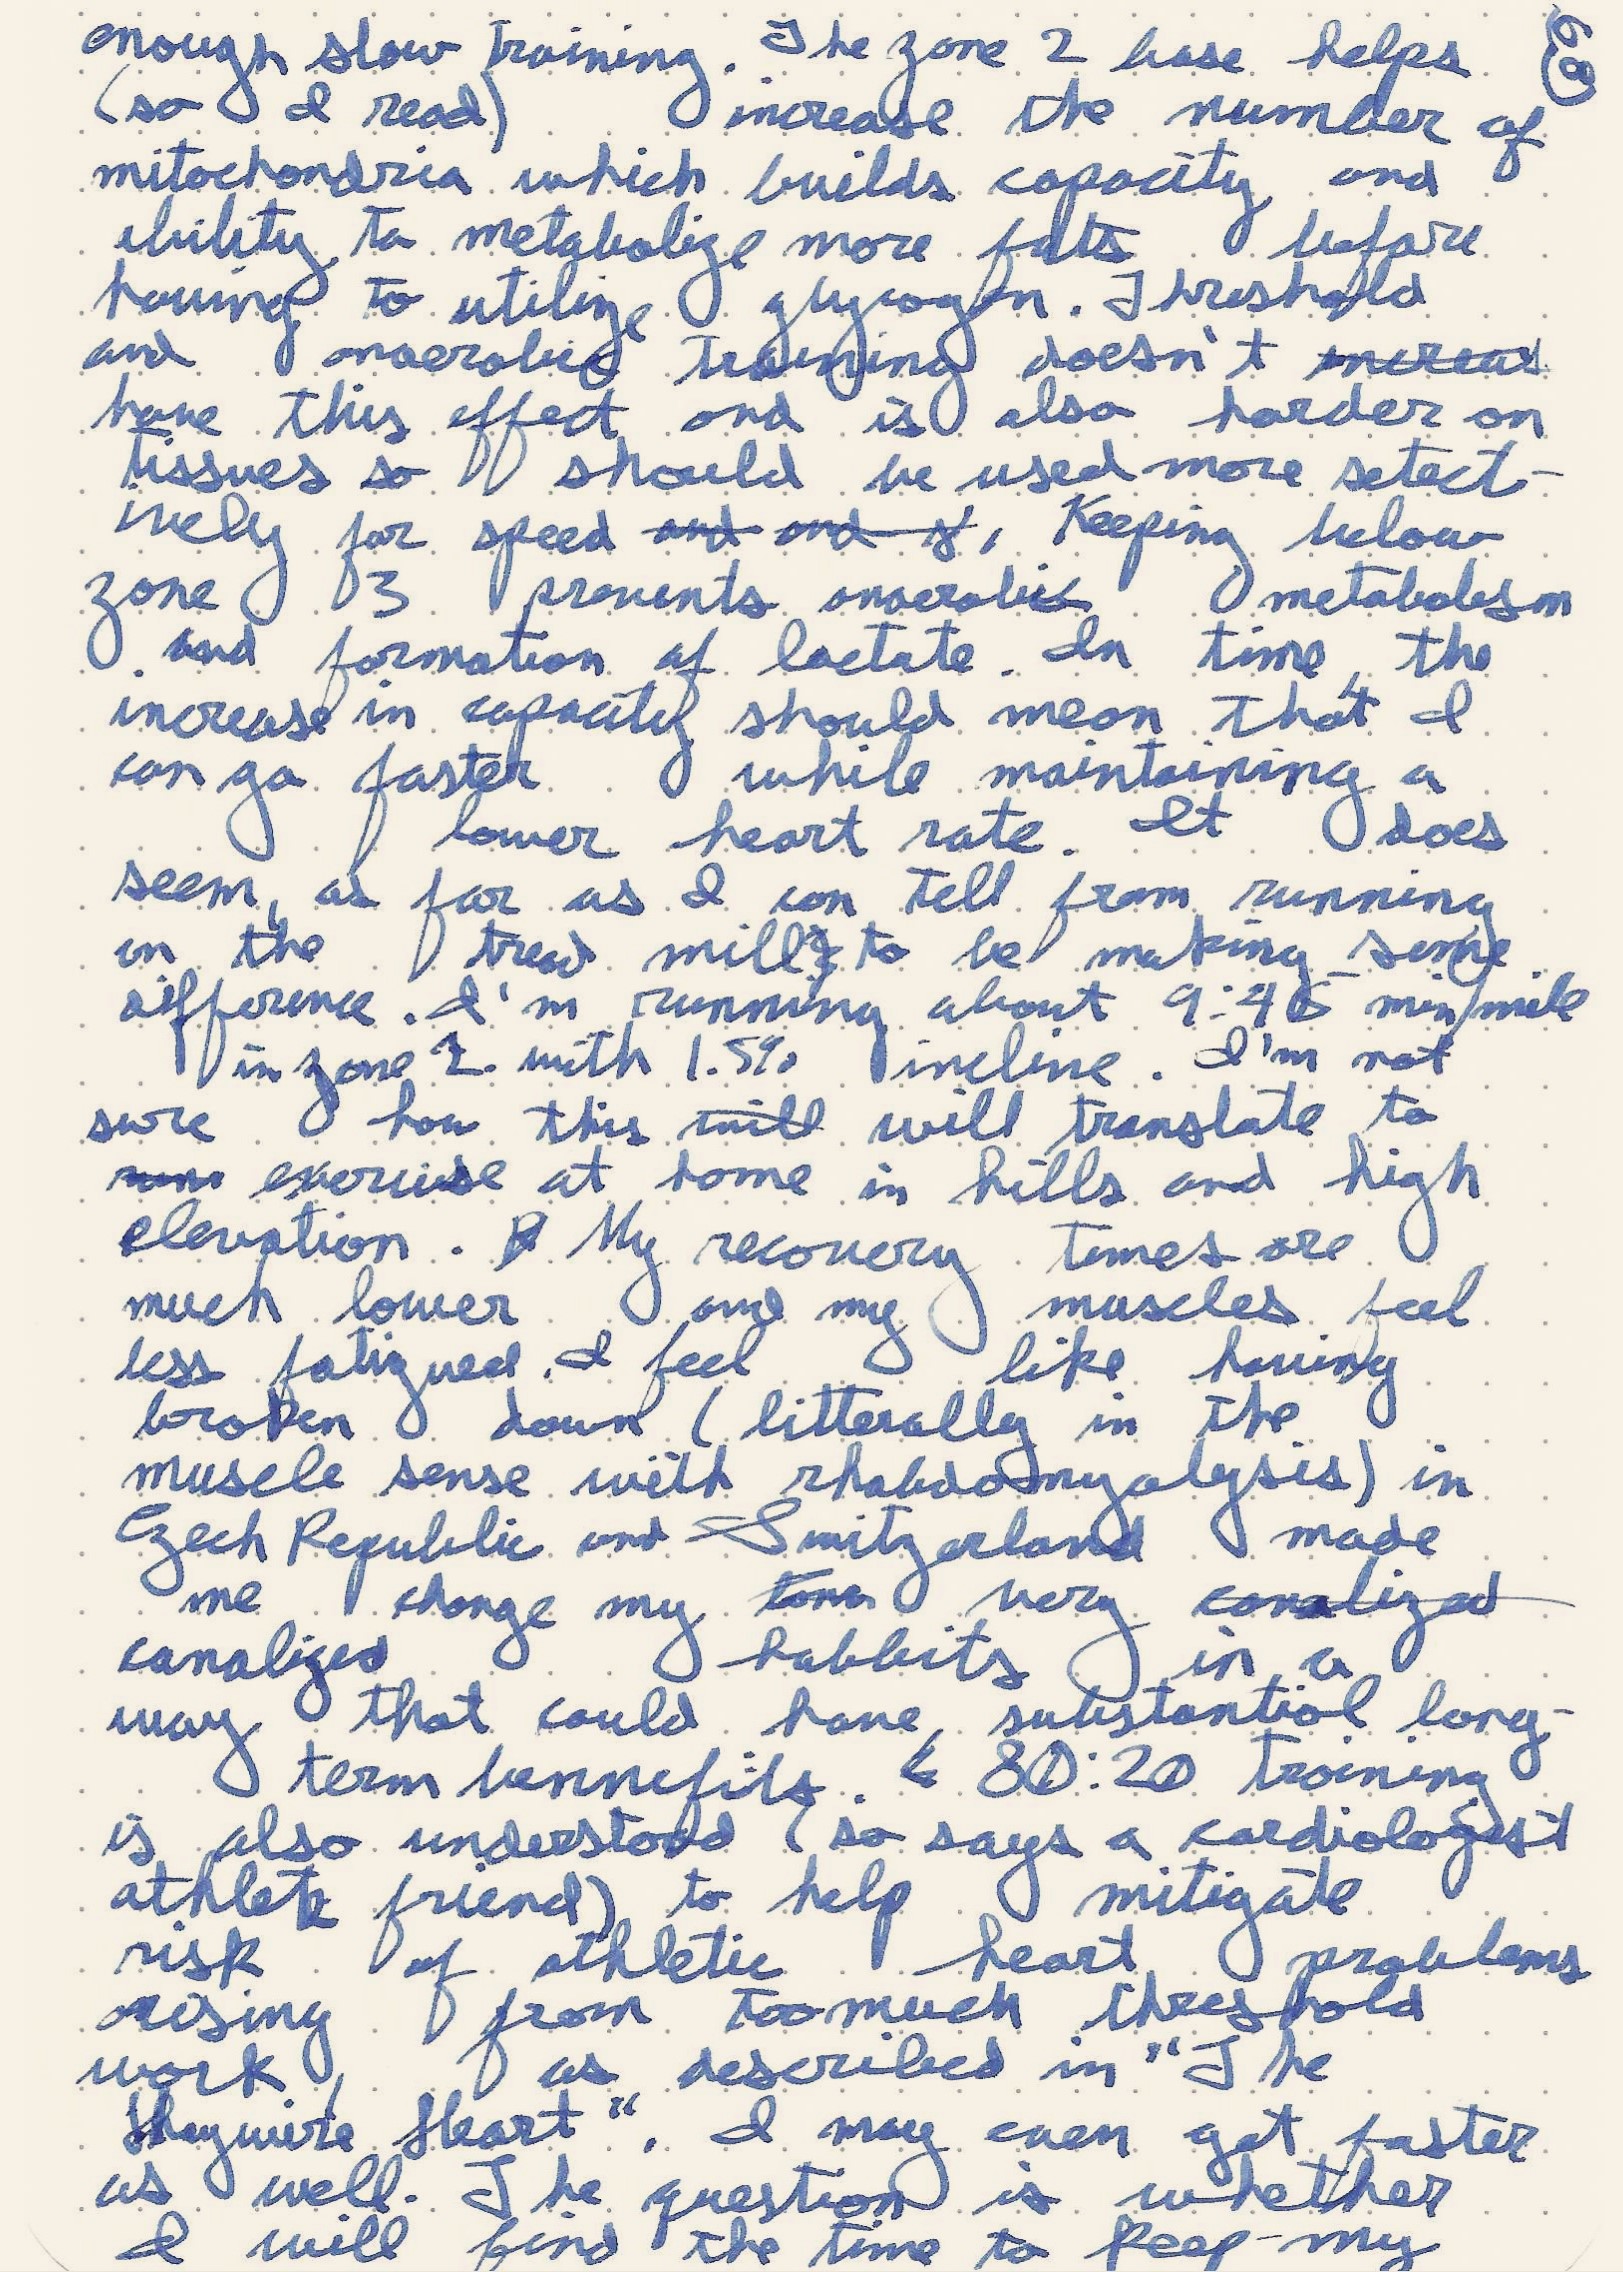 enough slow training. The zone 2 base helps 68
(so I read) increase the number of
mitochondria which builds capacity and
ability to metabolize more fats before
having to utilize glycogen. Threshold
and anaerobic training doesn't increas
have this effect and is also harder on
tissues so should be used more select-
ively for speed and and
zone 3 prevents anaerobic metabolism
and formation of lactate. In time, the
increase in capacity should mean that I
can go faster while maintaining a
lower heart rate. It does
seem, as far as I can tell from running
on the tread mill, to be making some
difference. I'm running about 9:45 min/mile
in zone 2 with 1.5% incline. I'm not
sure how this will will translate to
runs exercise at home in hills and high
elevation. My recovery times are
much lower and my muscles feel
less fatigued. I feel like having
broken down (litterally in the
muscle sense with rhabdomyalysis) in
Czech Republic and Switzerland made
me change my very canalized
canalized habbits in a
way that could have substantial long-
term bennefits. 80:20 training
is also understood (so says a cardiologist
athlete friend) to help mitigate
risk of athletic heart problems
arising from too much threshold
work, as described in "The
Haywire Heart". I may even get faster
as well. The question is whether
I will find the time to keep my